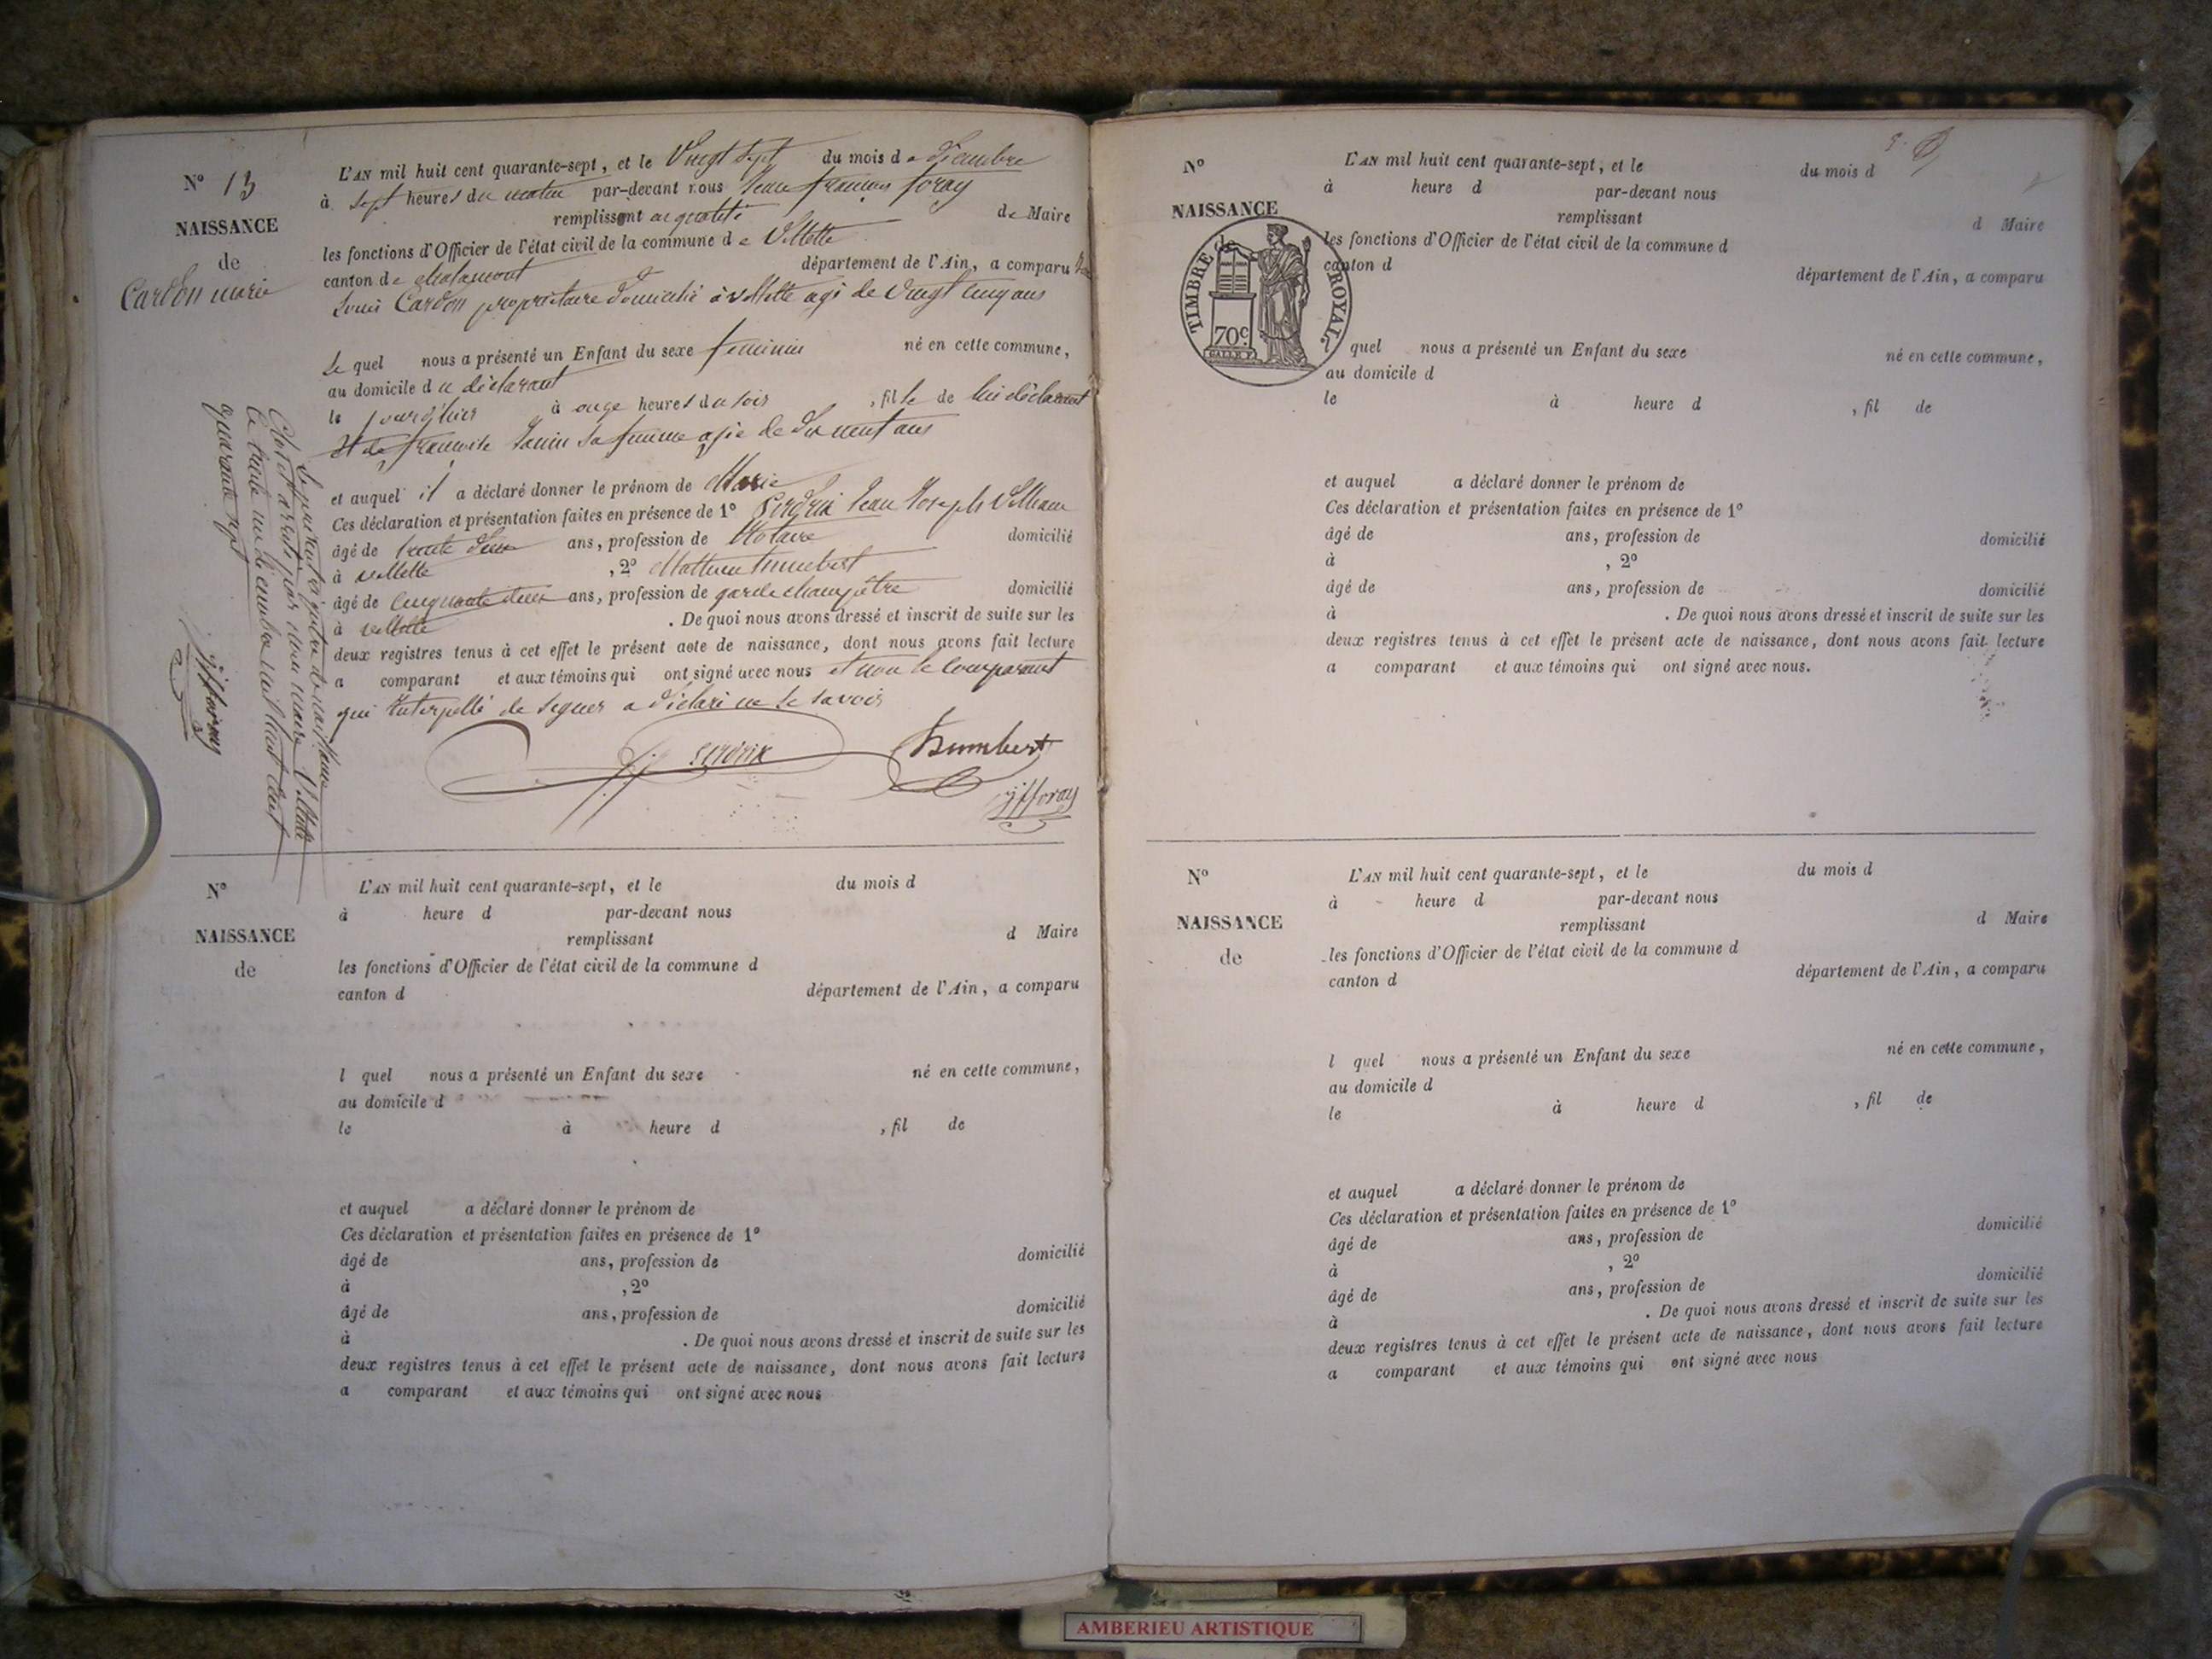 N° 13
NAISSANCE
de
Cardon marie
L'AN mil huit cent quarante-sept, et le Vingt Sept du mois de Décembre
à Sept heures du matin par-devant nous Jean francois foray
remplissant en qualité de Maire
les fonctions d'Officier de l'état civil de la commune de Villette
canton de Chalamont département de l'Ain, a comparu
Louis Cardon propriétaire domicilié à villette agé de Vingt cinq ans
Le quel nous a présenté un Enfant du sexe féminin né en cette commune,
au domicile du déclarant
le jour d'hier à onze heures du soir, fille de lui déclarant
Et de francoise Janin sa femme agée de dix neuf ans
et auquel il a déclaré donner le prénom de Marie
Ces déclaration et présentation faites en présence de 1° Perdrix Jean Joseph
âgé de trente deux ans, profession de Notaire domicilié
à villette, 2° Mathieu humbert
âgé de Cinquante deux ans, profession de garde champêtre domicilié
à villette. De quoi nous avons dressé et inscrit de suite sur les
deux registres tenus à cet effet le présent acte de naissance, dont nous avons fait lecture
a comparant et aux témoins qui ont signé avec nous et non le comparant
qui Interpellé de signer a déclaré ne le savoir
Perdrix Humbert
jfforay
Le présent registre de naissance
Clos et arrêté par nous maire Villette
Ce trente un décembre mil huit cent
quarante sept
jfforay
N°
NAISSANCE
de
L'AN mil huit cent quarante-sept, et le du mois d
à heure d par-devant nous
remplissant d Maire
les fonctions d'Officier de l'état civil de la commune d
canton d département de l'Ain, a comparu
l quel nous a présenté un Enfant du sexe né en cette commune,
au domicile d
le à heure d , fil de
et auquel a déclaré donner le prénom de
Ces déclaration et présentation faites en présence de 1°
âgé de ans, profession de domicilié
à , 2°
âgé de ans, profession de domicilié
à . De quoi nous avons dressé et inscrit de suite sur les
deux registres tenus à cet effet le présent acte de naissance, dont nous avons fait lecture
a comparant et aux témoins qui ont signé avec nous
N°
NAISSANCE
de
TIMBRE ROYAL
70c
L'AN mil huit cent quarante-sept, et le du mois d
à heure d par-devant nous
remplissant d Maire
les fonctions d'Officier de l'état civil de la commune d
canton d département de l'Ain, a comparu
l quel nous a présenté un Enfant du sexe né en cette commune,
au domicile d
le à heure d , fil de
et auquel a déclaré donner le prénom de
Ces déclaration et présentation faites en présence de 1°
âgé de ans, profession de domicilié
à , 2°
âgé de ans, profession de domicilié
à . De quoi nous avons dressé et inscrit de suite sur les
deux registres tenus à cet effet le présent acte de naissance, dont nous avons fait lecture
a comparant et aux témoins qui ont signé avec nous.
N°
NAISSANCE
de
L'AN mil huit cent quarante-sept, et le du mois d
à heure d par-devant nous
remplissant d Maire
les fonctions d'Officier de l'état civil de la commune d
canton d département de l'Ain, a comparu
l quel nous a présenté un Enfant du sexe né en cette commune,
au domicile d
le à heure d , fil de
et auquel a déclaré donner le prénom de
Ces déclaration et présentation faites en présence de 1°
âgé de ans, profession de domicilié
à , 2°
âgé de ans, profession de domicilié
à . De quoi nous avons dressé et inscrit de suite sur les
deux registres tenus à cet effet le présent acte de naissance, dont nous avons fait lecture
a comparant et aux témoins qui ont signé avec nous
AMBERIEU ARTISTIQUE